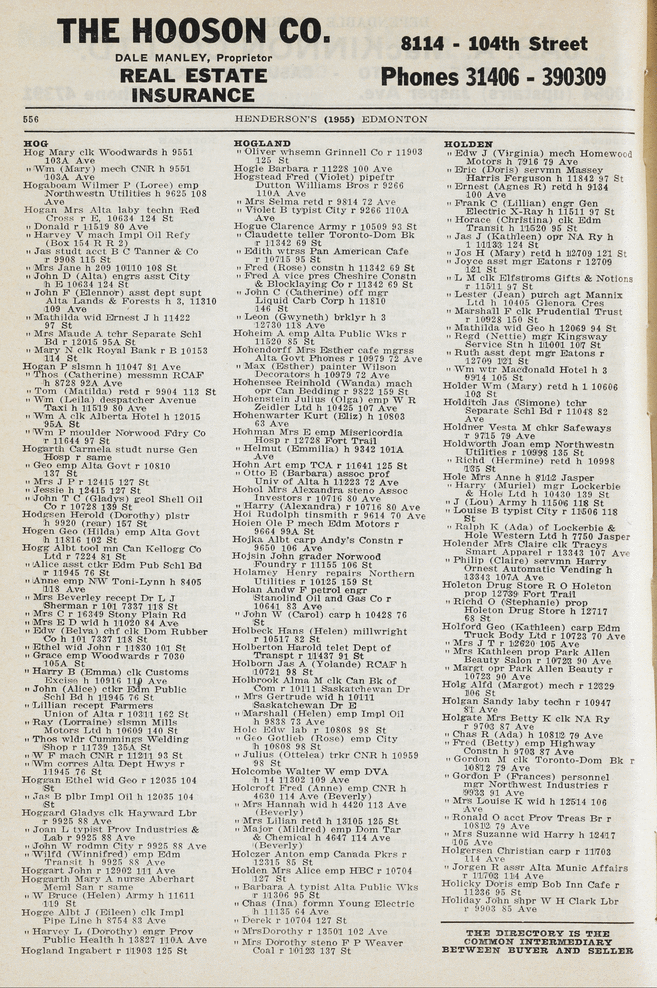 THE HOOSON CO.
DALE MANLEY, Proprietor
REAL ESTATE
INSURANCE
8114 - 104th Street
Phones 31406 - 390309
556
HENDERSON'S (1955) EDMONTON
HOG
Hog Mary clk Woodwards h 9551
103A Ave
" Wm (Mary) mech CNR h 9551
103A Ave
Hogaboam Wilmer P (Loree) emp
Northwestn Utilities h 9625 108
Ave
Hogan Mrs Alta laby techn Red
Cross r E, 10634 124 St
" Donald r 11519 80 Ave
" Harvey V mach Impl Oil Refy
(Box 154 R R 2)
" Jas studt acct B C Tanner & Co
r 9908 115 St
" Mrs Jane h 209 10110 108 St
" John D (Alta) engrs asst City
h E 10634 124 St
" John F (Ellennor) asst dept supt
Alta Lands & Forests h 3, 11310
109 Ave
" Mathilda wid Ernest J h 11422
97 St
" Mrs Maude A tchr Separate Schl
Bd r 12015 95A St
" Mary N clk Royal Bank r B 10153
114 St
Hogan P slsmn h 11047 81 Ave
" Thos (Catherine) messmn RCAF
h 8728 92A Ave
" Tom (Matilda) retd r 9904 113 St
" Wm (Leila) despatcher Avenue
Taxi h 11519 80 Ave
" Wm A clk Alberta Hotel h 12015
95A St
" Wm P moulder Norwood Fdry Co
r 11644 97 St
Hogarth Carmela studt nurse Gen
Hosp r same
" Geo emp Alta Govt r 10810
137 St
" Mrs J P r 12415 127 St
" Jessie h 12415 127 St
" John T C (Gladys) geol Shell Oil
Co r 10728 139 St
Hodgsen Herold (Dorothy) plstr
h 9920 (rear) 157 St
Hogen Geo (Hilda) emp Alta Govt
h 11816 102 St
Hogg Albt tool mn Can Kellogg Co
Ltd r 7224 81 St
" Alice asst ctkr Edm Pub Schl Bd
r 11945 76 St
" Anne emp NW Toni-Lynn h 8405
118 Ave
" Mrs Beverley recpt Dr L J
Sherman r 101 7337 118 St
" Mrs C r 16349 Stony Plain Rd
" Mrs E D wid h 11020 84 Ave
" Edw (Belva) chf clk Dom Rubber
Co h 101 7337 118 St
" Ethel wid John r 11830 101 St
" Grace emp Woodwards r 7030
105A St
" Harry B (Emma) clk Customs
Excise h 10916 110 Ave
" John (Alice) ctkr Edm Public
Schl Bd h 11945 76 St
" Lillian recpt Farmers
Union of Alta r 10311 162 St
" Ray (Lorraine) slsmn Mills
Motors Ltd h 10609 140 St
" Thos wldr Cummings Welding
Shop r 11739 135A St
" W F mach CNR r 11211 93 St
" Wm corres Alta Dept Hwys r
11945 76 St
Hoggan Ethel wid Geo r 12035 104
St
" Jas B plbr Impl Oil h 12035 104
St
Hoggard Gladys clk Hayward Lbr
r 9925 88 Ave
" Joan L typist Prov Industries &
Lab r 9925 88 Ave
" John W rodmn City r 9925 88 Ave
" Wilfd (Winnifred) emp Edm
Transit h 9925 88 Ave
Hoggart John r 12902 111 Ave
Hoggarth Mary A nurse Aberhart
Meml San r same
" W Bruce (Helen) Army h 11611
119 St
Hogge Albt J (Eileen) clk Impl
Pipe Line h 8754 83 Ave
" Harvey L (Dorothy) engr Prov
Public Health h 13827 110A Ave
Hogland Ingabert r 11903 125 St
HOGLAND
" Oliver whsemn Grinnell Co r 11903
125 St
Hogle Barbara r 11228 100 Ave
Hogstead Fred (Violet) pipeftr
Dutton Williams Bros r 9266
110A Ave
" Mrs Selma retd r 9814 72 Ave
" Violet B typist City r 9266 110A
Ave
Hogue Clarence Army r 10509 93 St
" Claudette teller Toronto-Dom Bk
r 11342 69 St
" Edith wtrss Pan American Cafe
r 10715 95 St
" Fred (Rose) constn h 11342 69 St
" Fred A vice pres Cheshire Constn
& Blocklaying Co r 11342 69 St
" John C (Catherine) off mgr
Liquid Carb Corp h 11810
146 St
" Leon (Gwyneth) brklyr h 3
12730 118 Ave
Hoheim A emp Alta Public Wks r
11520 85 St
Hohendorf Mrs Esther cafe mgrss
Alta Govt Phones r 10979 72 Ave
" Max (Esther) painter Wilson
Decorators h 10979 72 Ave
Hohensee Reinhold (Wanda) mach
opr Can Bedding r 9822 159 St
Hohenstein Julius (Olga) emp W R
Zeidler Ltd h 10425 107 Ave
Hohenwarter Kurt (Eliz) h 10803
63 Ave
Hohman Mrs E emp Misericordia
Hosp r 12728 Fort Trail
" Helmut (Emmilia) h 9342 101A
Ave
Hohn Art emp TCA r 11641 125 St
" Otto E (Barbara) assoc prof
Univ of Alta h 11223 72 Ave
Hohol Mrs Alexandra steno Assoc
Investors r 10716 80 Ave
" Harry (Alexandra) r 10716 80 Ave
Hoi Rudolph tinsmith r 9614 70 Ave
Hoien Ole P mech Edm Motors r
9664 99A St
Hojka Albt carp Andy's Constn r
9650 106 Ave
Hojsin John grader Norwood
Foundry r 11155 106 St
Holamey Henry repairs Northern
Utilities r 10125 159 St
Holan Andw F petrol engr
Stanolind Oil and Gas Co r
10641 83 Ave
" John W (Carol) carp h 10428 76
St
Holbeck Hans (Helen) millwright
r 10517 82 St
Holberton Harold telet Dept of
Transpt r 11437 91 St
Holborn Jas A (Yolande) RCAF h
10721 98 St
Holbrook Alma M clk Can Bk of
Com r 10111 Saskatchewan Dr
" Mrs Gertrude wid h 10111
Saskatchewan Dr E
" Marshall (Helen) emp Impl Oil
h 9838 73 Ave
Holc Edw lab r 10808 98 St
" Geo Gotlieb (Rose) emp City
h 10808 98 St
" Julius (Ottelea) trkr CNR h 10959
98 St
Holcombe Walter W emp DVA
h 14 11302 109 Ave
Holcroft Fred (Anne) emp CNR h
4630 114 Ave (Beverly)
" Mrs Hannah wid h 4420 113 Ave
(Beverly)
" Mrs Lilian retd h 13105 125 St
" Major (Mildred) emp Dom Tar
& Chemical h 4647 114 Ave
(Beverly)
Holczer Anton emp Canada Pkrs r
12315 85 St
Holden Mrs Alice emp HBC r 10704
127 St
" Barbara A typist Alta Public Wks
r 11306 95 St
" Chas (Ina) formn Young Electric
h 11135 64 Ave
" Derek r 10704 127 St
" MrsDorothy r 13501 102 Ave
" Mrs Dorothy steno F P Weaver
Coal r 10123 137 St
HOLDEN
" Edw J (Virginia) mech Homewood
Motors h 7916 79 Ave
" Eric (Doris) servmn Massey
Harris Ferguson h 11842 97 St
" Ernest (Agnes R) retd h 9134
100 Ave
" Frank C (Lillian) engr Gen
Electric X-Ray h 11511 97 St
" Horace (Christina) clk Edm
Transit h 11520 95 St
" Jas J (Kathleen) opr NA Ry h
1 11133 124 St
" Jos H (Mary) retd h 12709 121 St
" Joyce asst mgr Eatons r 12709
121 St
" L M clk Elfstroms Gifts & Notions
r 11511 97 St
" Lester (Jean) purch agt Mannix
Ltd h 10405 Glenora Cres
" Marshall F clk Prudential Trust
r 10928 150 St
" Mathilda wid Geo h 12069 94 St
" Regd (Nettie) mgr Kingsway
Service Stn h 11001 107 St
" Ruth asst dept mgr Eatons r
12709 121 St
" Wm wtr Macdonald Hotel h 3
9914 105 St
Holder Wm (Mary) retd h 1 10606
103 St
Holditch Jas (Simone) tchr
Separate Schl Bd r 11048 82
Ave
Holdner Vesta M chkr Safeways
r 9715 79 Ave
Holdworth Joan emp Northwestn
Utilities r 10998 135 St
" Richd (Hermine) retd h 10998
135 St
Hole Mrs Anne h 8112 Jasper
" Harry (Muriel) mgr Lockerbie
& Hole Ltd h 10430 139 St
" J (Lou) Army h 11506 118 St
" Louise B typist City r 11506 118
St
" Ralph K (Ada) of Lockerbie &
Hole Western Ltd h 7750 Jasper
Holender Mrs Claire clk Tracys
Smart Apparel r 13343 107 Ave
" Philip (Claire) servmn Harry
Ornest Automatic Vending h
13343 107A Ave
Holeton Drug Store R O Holeton
prop 12739 Fort Trail
" Richd O (Stephanie) prop
Holeton Drug Store h 12717
68 St
Holford Geo (Kathleen) carp Edm
Truck Body Ltd r 10723 70 Ave
" Mrs J T r 12620 105 Ave
" Mrs Kathleen prop Park Allen
Beauty Salon r 10723 90 Ave
" Margt opr Park Allen Beauty r
10723 90 Ave
Holg Alfd (Margot) mech r 12329
106 St
Holgan Sandy laby techn r 10947
81 Ave
Holgate Mrs Betty K clk NA Ry
r 9703 87 Ave
" Chas R (Ada) h 10812 79 Ave
" Fred (Betty) emp Highway
Constn h 9703 87 Ave
" Gordon M clk Toronto-Dom Bk r
10812 79 Ave
" Gordon P (Frances) personnel
mgr Northwest Industries r
9933 91 Ave
" Mrs Louise K wid h 12514 106
Ave
" Ronald O acct Prov Treas Br r
10812 79 Ave
" Mrs Suzanne wid Harry h 12417
105 Ave
Holgersen Christian carp r 11703
114 Ave
" Jorgen R assr Alta Munic Affairs
r 11703 114 Ave
Holicky Doris emp Bob Inn Cafe r
11236 95 St
Holiday John shpr W H Clark Lbr
r 9903 85 Ave
THE DIRECTORY IS THE
COMMON INTERMEDIARY
BETWEEN BUYER AND SELLER